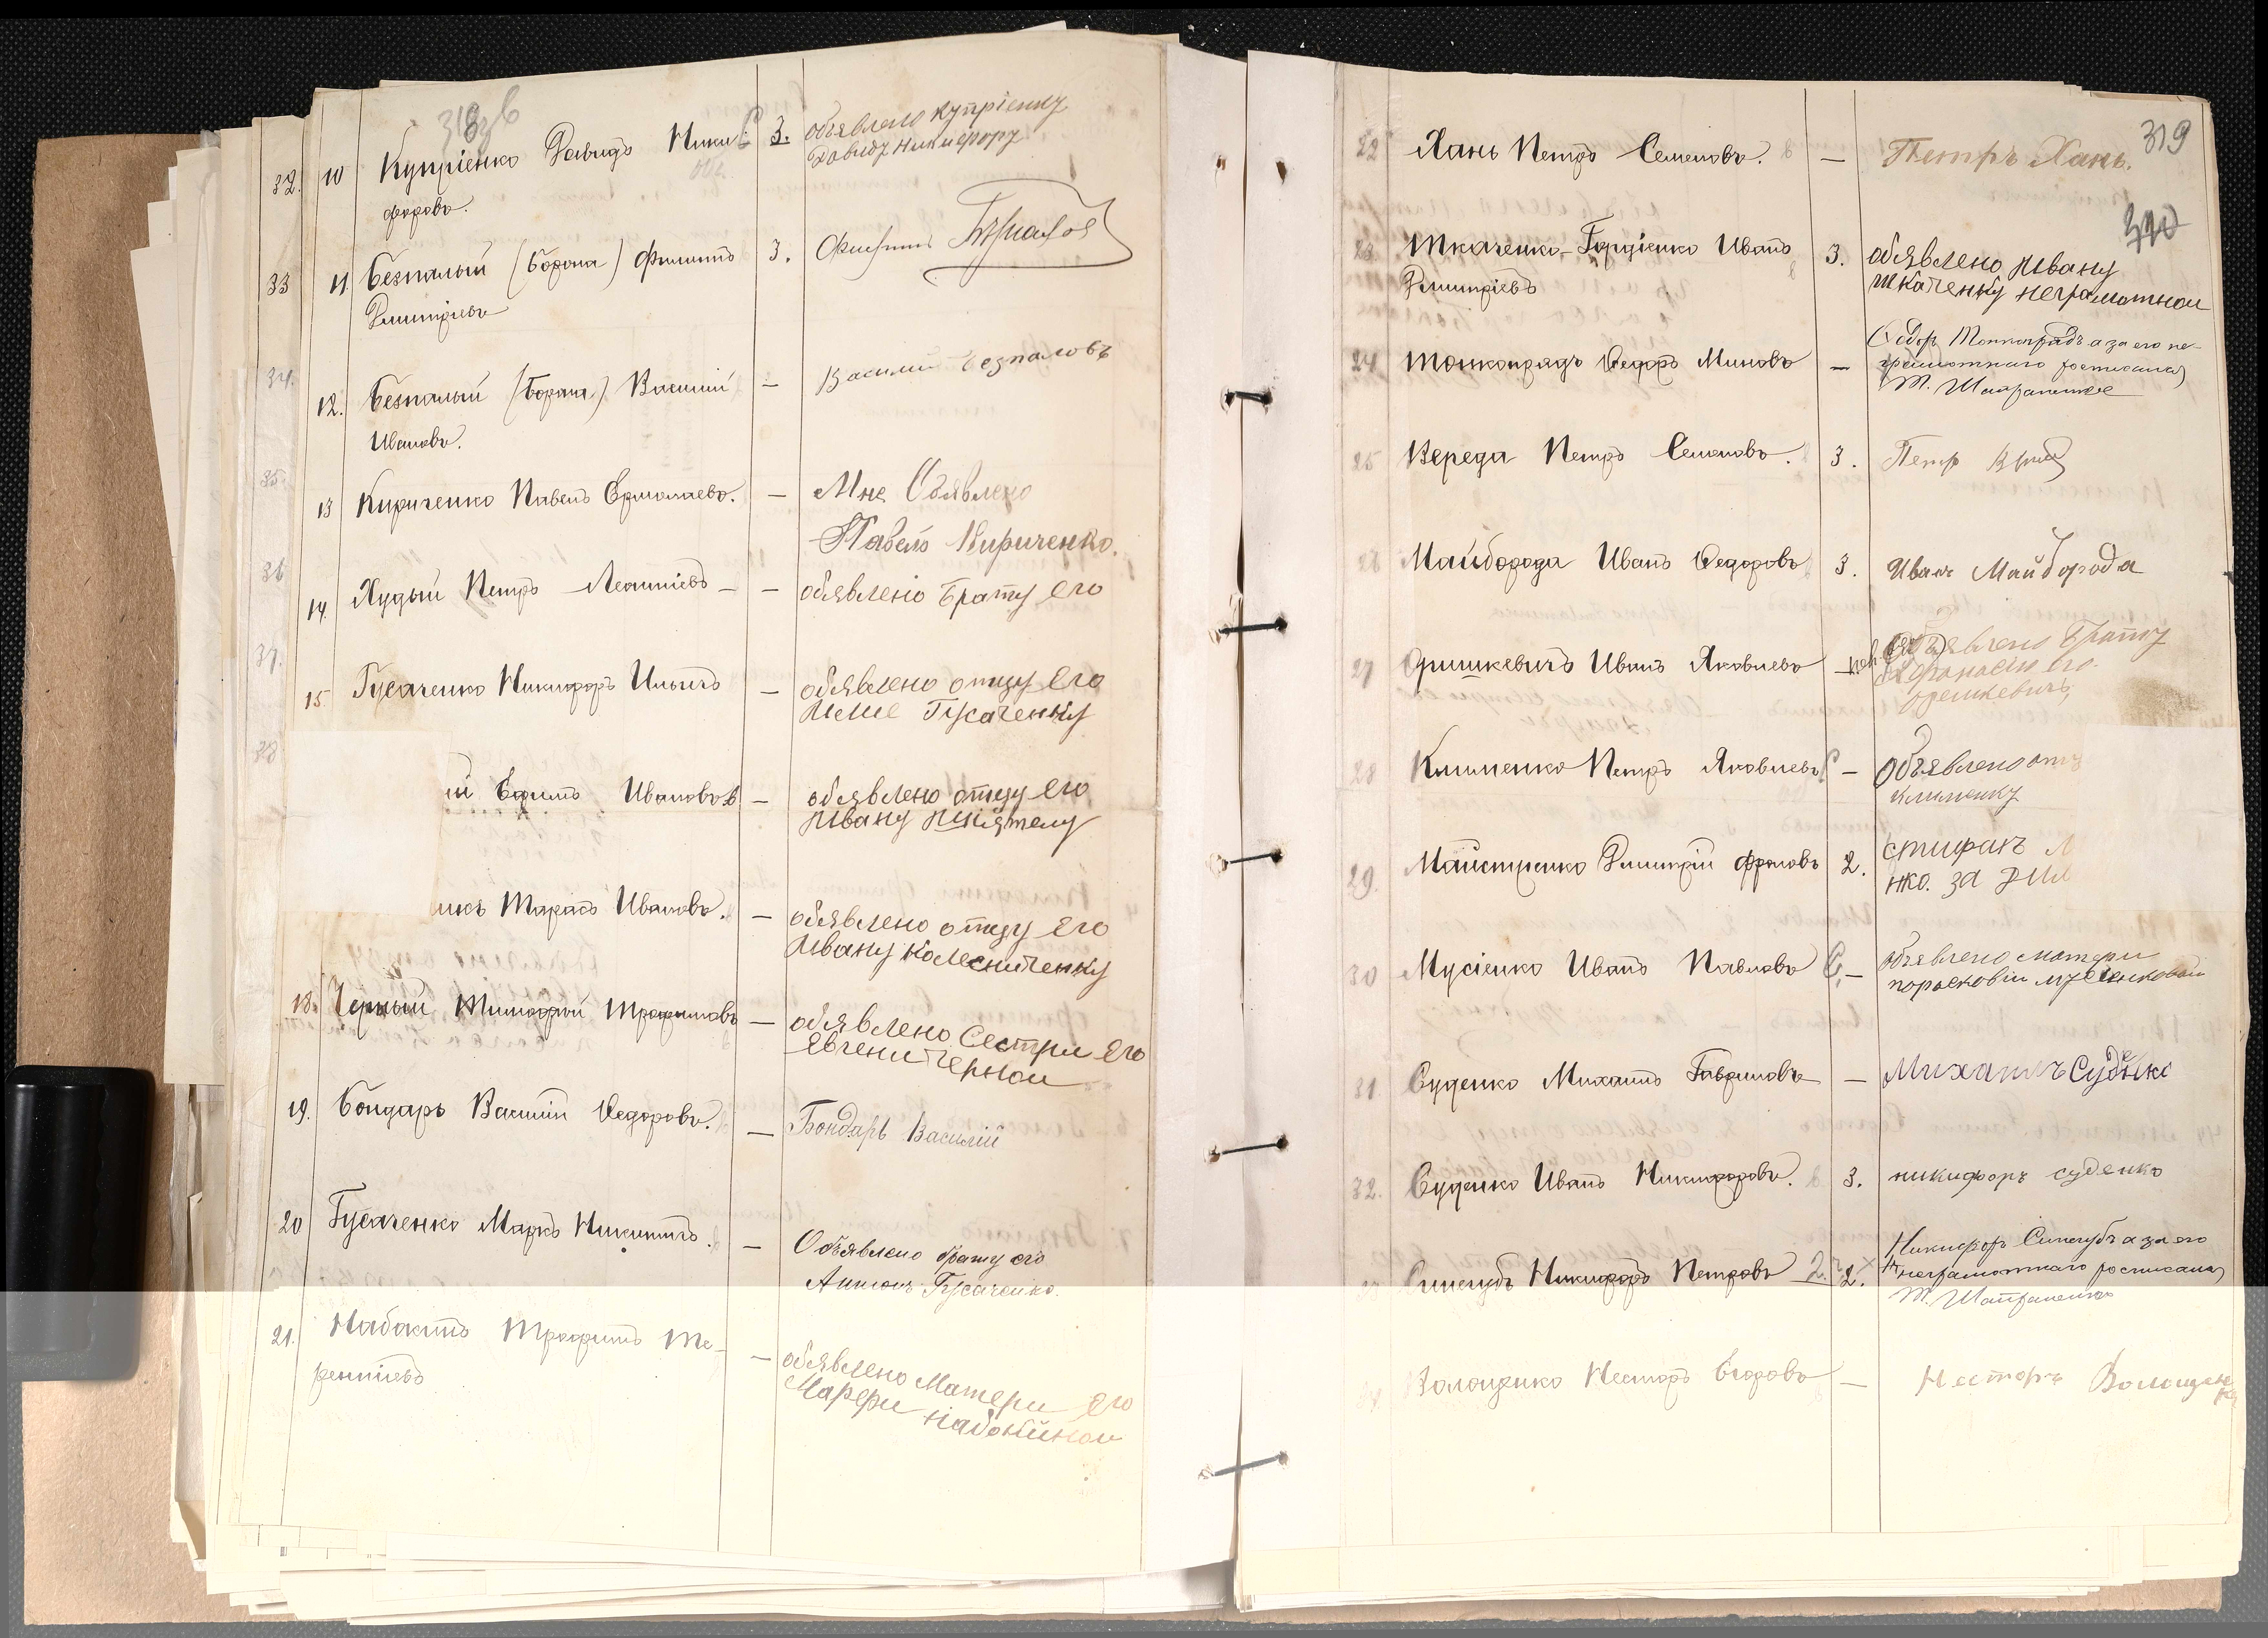 32. 10 Купріенко Давидъ Ники- 3. объявлено Купріенку
форовъ. Давиду Никифору
33 11 Безпалый (Борона) Филиппъ 3. Филипъ
Дмитріевъ
34. 12. Безпалый (Борона) Василій — Василий Безпаловъ
Ивановъ.
35 13 Кириченко Павелъ Ермолаевъ. — Мне Объявлено
Павелъ Кириченко.
36 14. Худый Петръ Леонтіевъ — — объявлено Брату его
37. 15 Гусаченко Никифоръ Ильичъ — объявлено отцу его
Илие Гусаченку
38 й Ефимъ Ивановъ — объявлено отцу его
Ивану
икъ Тарасъ Ивановъ. — объявлено отцу его
Ивану Колесниченку
18. Чёрный Тимофей Трофимовъ — объявлено Сестри его
Евгени Чернои
19. Бондарь Василій Федоровъ. — Бондарь Василій
20 Гусаченко Марко Никитичъ. — Объявлено брату его
Антонъ Гусаченко.
21. Набокинъ Трофимъ Те- — объявлено Матери его
рентіевъ Марфи Набокиной
319
22 Хань Петръ Семеновъ. — Петръ Хань.
23 Ткаченко-Гордіенко Иванъ 3. объявлено Ивану
Дмитріевъ ткаченку неграмотнои
24 Тонкопрядъ Федоръ Миновъ — Федор Тонкопрядъ а за его не-
грамотнаго росписался
Т.
25 Вереда Петръ Семеновъ. 3. Петр
26 Майборода Иванъ Федоровъ 3. Иван Майборода
27 Оришкевичъ Иванъ Яковлевъ — объявлено Брату
Афонасію его
орешкевичъ
28 Клименко Петръ Яковлевъ — Объявлено отц
клименку
29. Майстренко Дмитрій Фроловъ 2. стифан
нко. за
30 Мусіенко Иванъ Павловъ — объявлено матери
порасковіи мусіенковой
31 Суденко Михаилъ Гавриловъ — Михаилъ Суденко
32. Суденко Иванъ Никифоровъ. 3. никифоръ суденко
Синегубъ Никифоръ Петровъ 2. Никифор Синегубъ а за его
неграмотнаго росписался
Т.
34 Волощенко Несторъ Егоровъ — Несторъ Волощенко